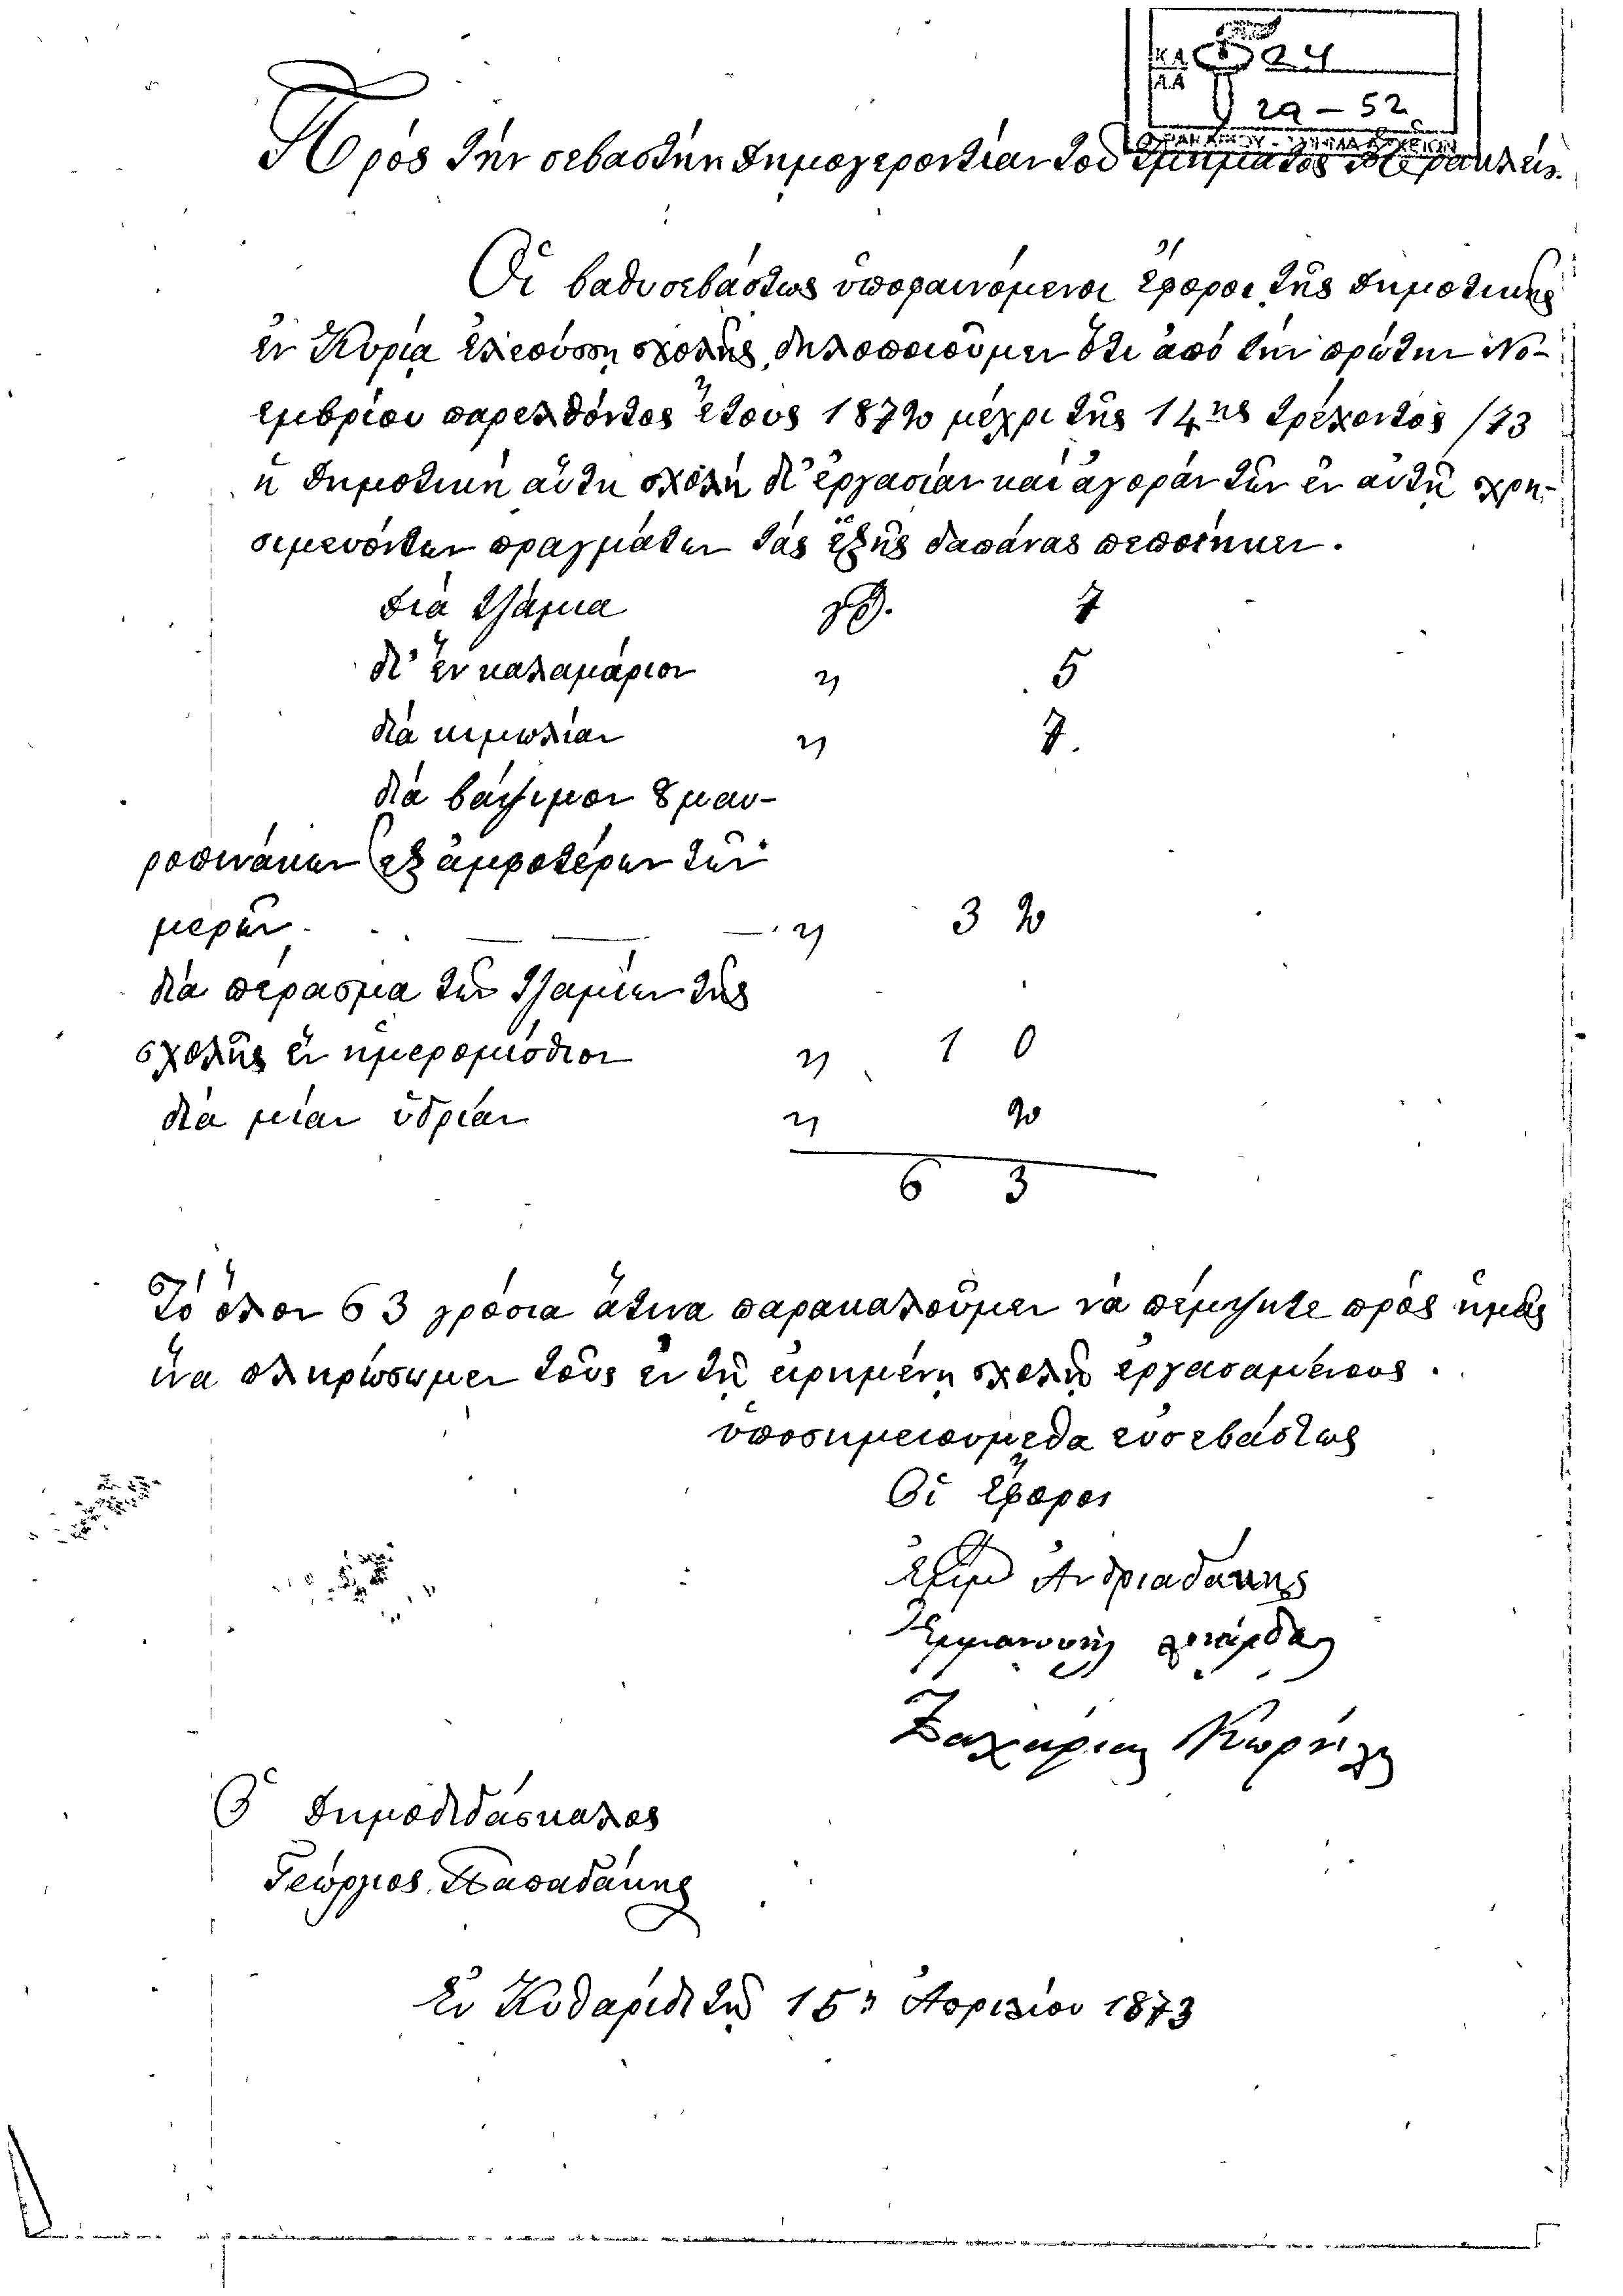 ΚΑ 24
Α.Α
29 – 52
Πρός τήν σεβαστήν δημογεροντίαν τοῦ τμήματος Ἡρακλείου.
Οἱ βαθυσεβάστως ὑποφαινόμενοι ἔφοροι τῆς δημοτικῆς
ἐν Κυρίᾳ ἐλεούσῃ σχολῆς, δηλοποιοῦμεν ὅτι ἀπό τήν πρώτην Νο-
εμβρίου παρελθόντος ἔτους 1872 μέχρι τῆς 14ης τρέχοντος /73
ἡ δημοτική αὕτη σχολή δι' ἐργασίαν καί ἀγοράν τῶν ἐν αὐτῇ χρη-
σιμευόντων πραγμάτων τάς ἑξῆς δαπάνας πεποίηκεν.
διά τζάμια γρ. 7
δι' ἕν καλαμάριον " 5
διά κιμωλίαν " 7.
διά βάψιμον 8 μαυ-
ροπινάκων (ἐξ ἀμφοτέρων τῶν
μερῶν " 3 2
διά πέρασμα τῶν τζαμίων τῆς
σχολῆς ἕν ἡμερομίσθιον " 1 0
διά μίαν ὑδρίαν " 2
6 3
Τό ὅλον 63 γρόσια ἅτινα παρακαλοῦμεν νά πέμψητε πρός ἡμᾶς
ἵνα πληρώσωμεν τούς ἐν τῇ εἰρημένῃ σχολῇ ἐργασαμένους.
ὑποσημειούμεθα εὐσεβάστως
Οἱ ἔφοροι
Ἀνδριαδάκης
Ἐμμανουήλ
Ζαχαρίας
Ὁ δημοδιδάσκαλος
Γεώργιος Παπαδάκης
Ἐν Κυθαρίδι τῇ 15ῃ Ἀπριλίου 1873